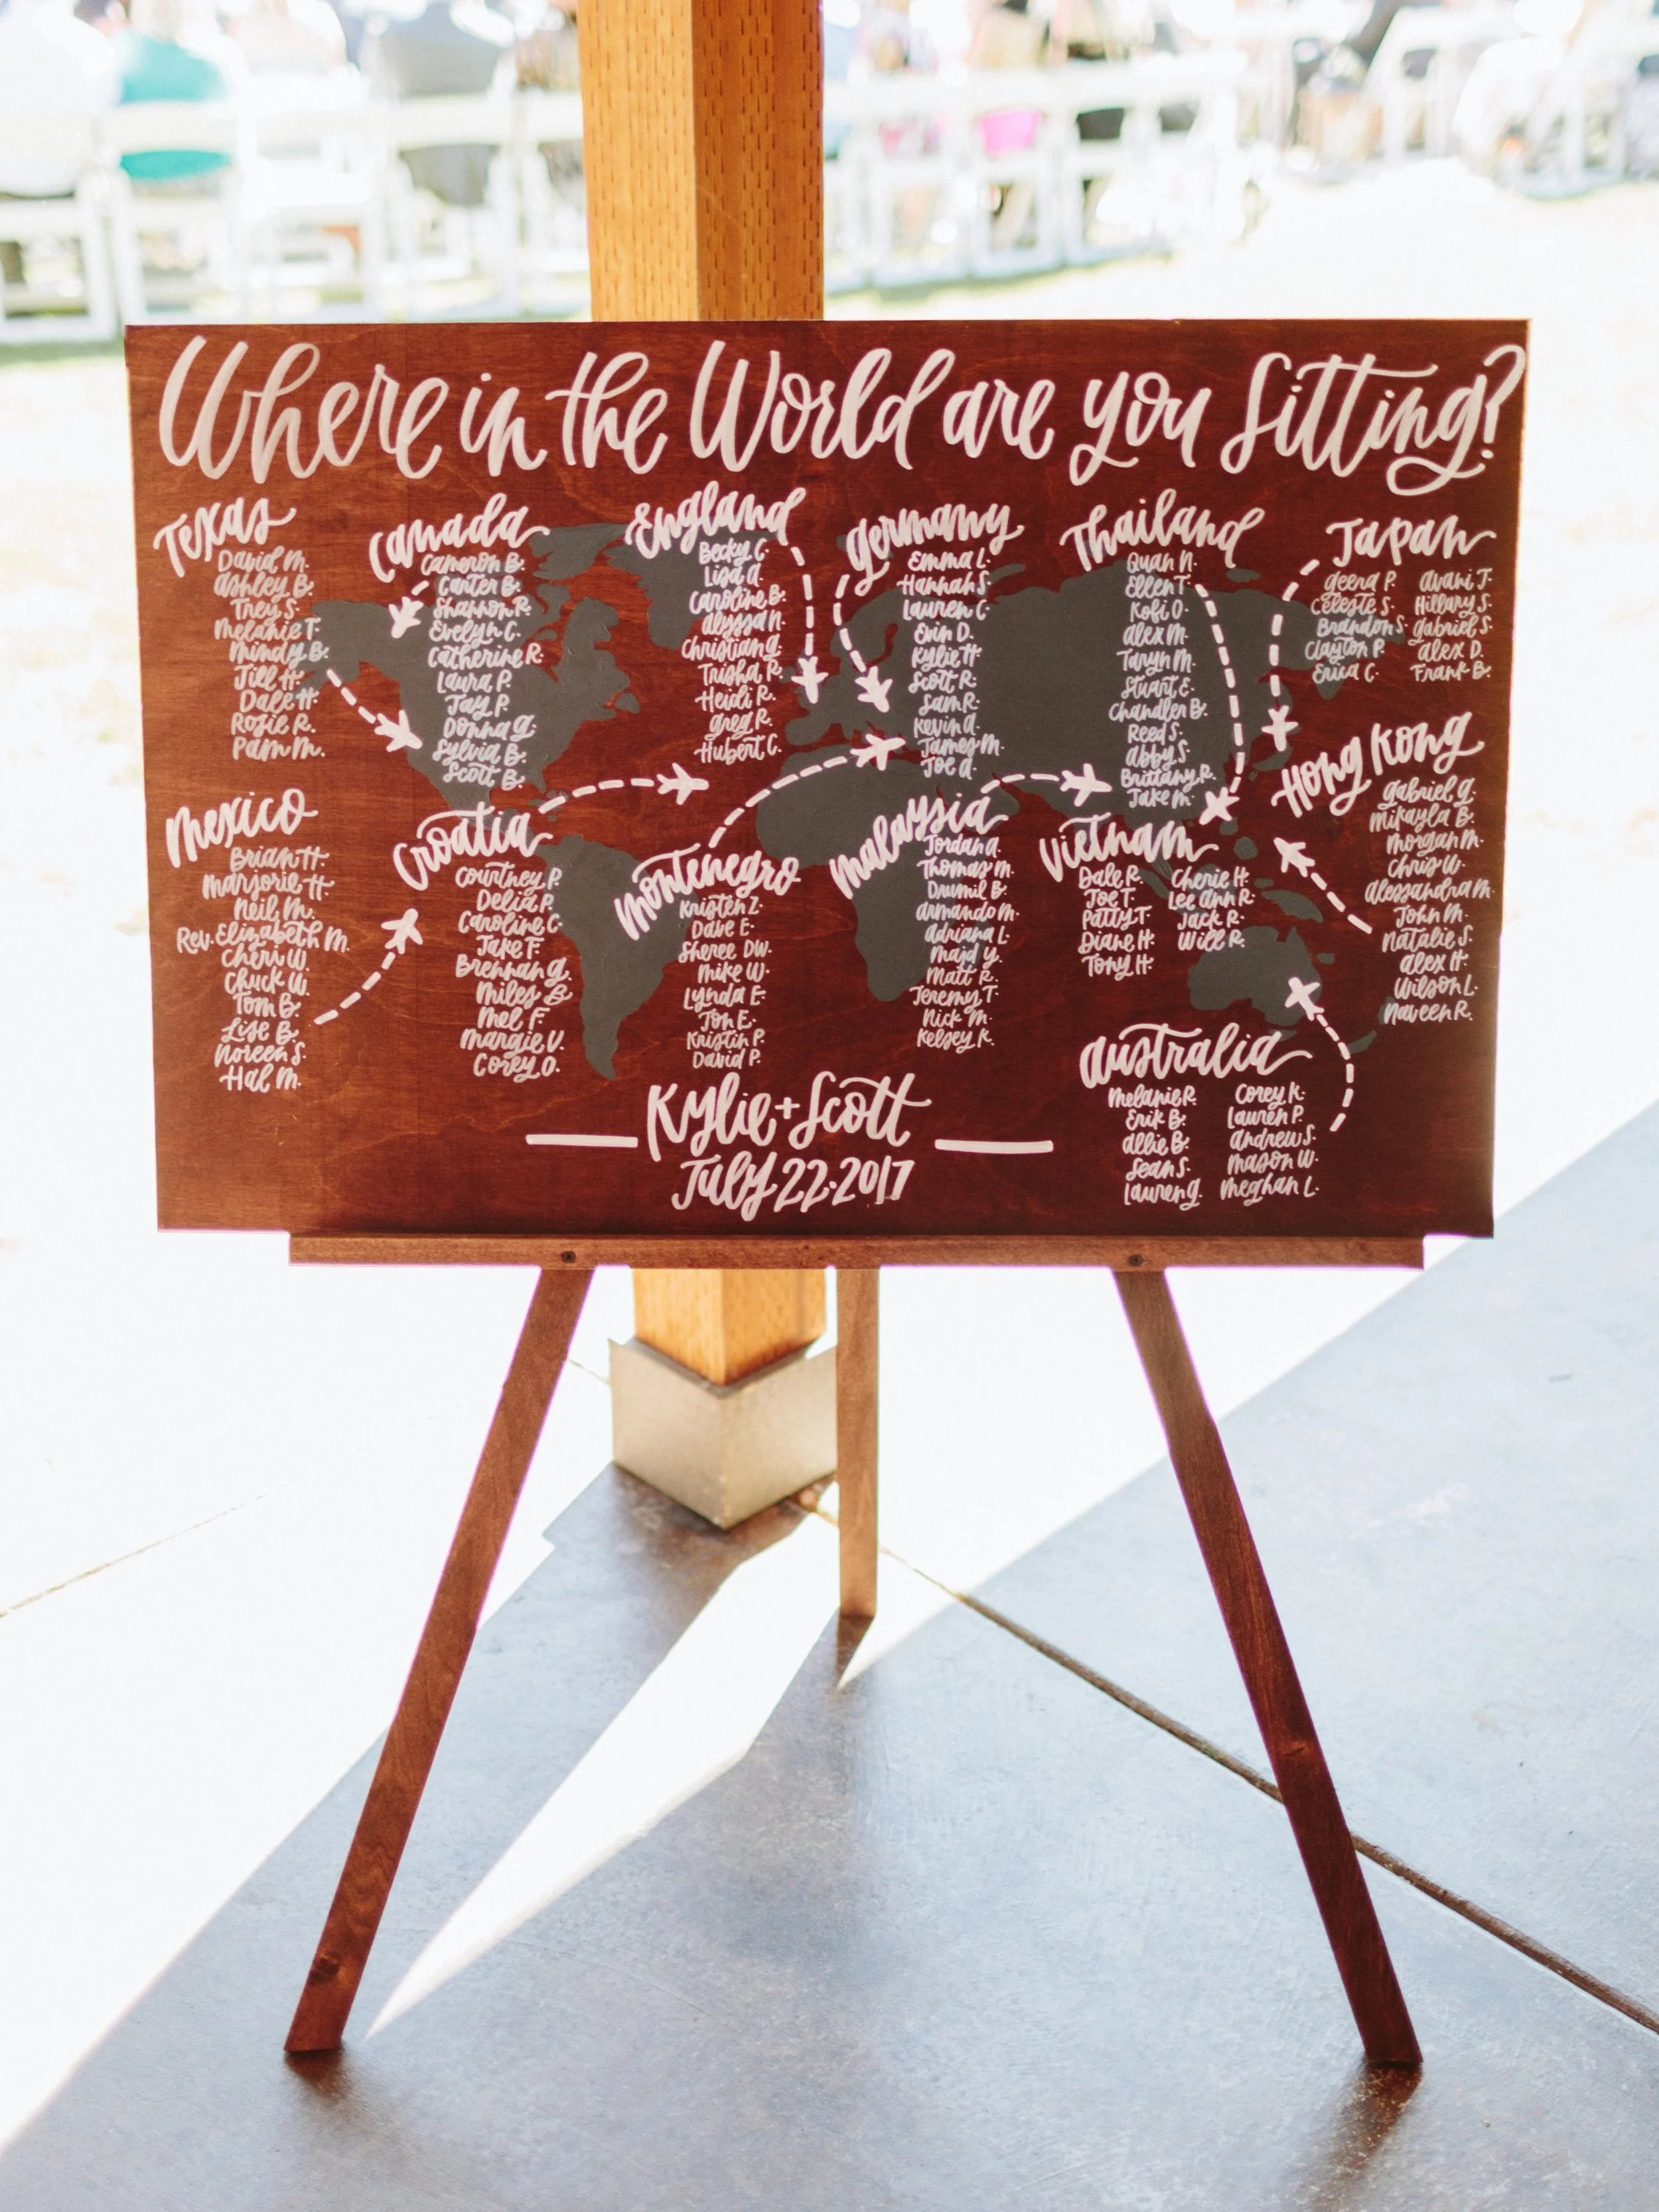 Where in the World are you Sitting?
Texas
David M.
Ashley B.
Trey S.
Melanie T.
Mindy B.
Jill H.
Dale H.
Rosie R.
Pam M.
Canada
Cameron B.
Carter B.
Shannon R.
Evelyn C.
Catherine R.
Laura P.
Jay P.
Donna G.
Sylvia B.
Scott B.
England
Becky C.
Lisa A.
Caroline B.
Alyssa N.
Christian G.
Trisha R.
Heidi R.
Greg R.
Hubert C.
Germany
Emma L.
Hannah S.
Lauren C.
Erin D.
Kylie H.
Scott R.
Sam R.
Kevin A.
James M.
Joe A.
Thailand
Quan N.
Ellen T.
Kofi O.
Alex M.
Taryn M.
Stuart E.
Chandler B.
Reed S.
Abby S.
Brittany R.
Jake M.
Japan
Geena P.
Celeste S.
Brandon S.
Clayton P.
Erica C.
Avani J.
Hillary S.
Gabriel S.
Alex D.
Frank B.
Mexico
Brian H.
Marjorie H.
Neil M.
Rev. Elizabeth M.
Cheri W.
Chuck W.
Tom B.
Lise B.
Noreen S.
Hal M.
Croatia
Courtney P.
Delia P.
Caroline C.
Jake F.
Brennan G.
Miles B.
Mel F.
Margie V.
Corey O.
Montenegro
Kristen Z.
Dave E.
Sheree DW.
Mike W.
Lynda E.
Jon E.
Kristin P.
David P.
Malaysia
Jordan A.
Thomas M.
Drumil B.
Armando M.
Adriana L.
Majd Y.
Matt R.
Jeremy T.
Nick M.
Kelsey K.
Vietnam
Dale R.
Joe T.
Patty T.
Diane H.
Tony H.
Cherie H.
Lee Ann R.
Jack R.
Will R.
Hong Kong
Gabriel G.
Mikayla B.
Morgan M.
Chris W.
Alessandra M.
John M.
Natalie S.
Alex H.
Wilson L.
Naveen R.
Australia
Melanie R.
Erik B.
Allie B.
Sean S.
Lauren G.
Corey K.
Lauren P.
Andrew S.
Mason W.
Meghan L.
Kylie + Scott
July 22·2017